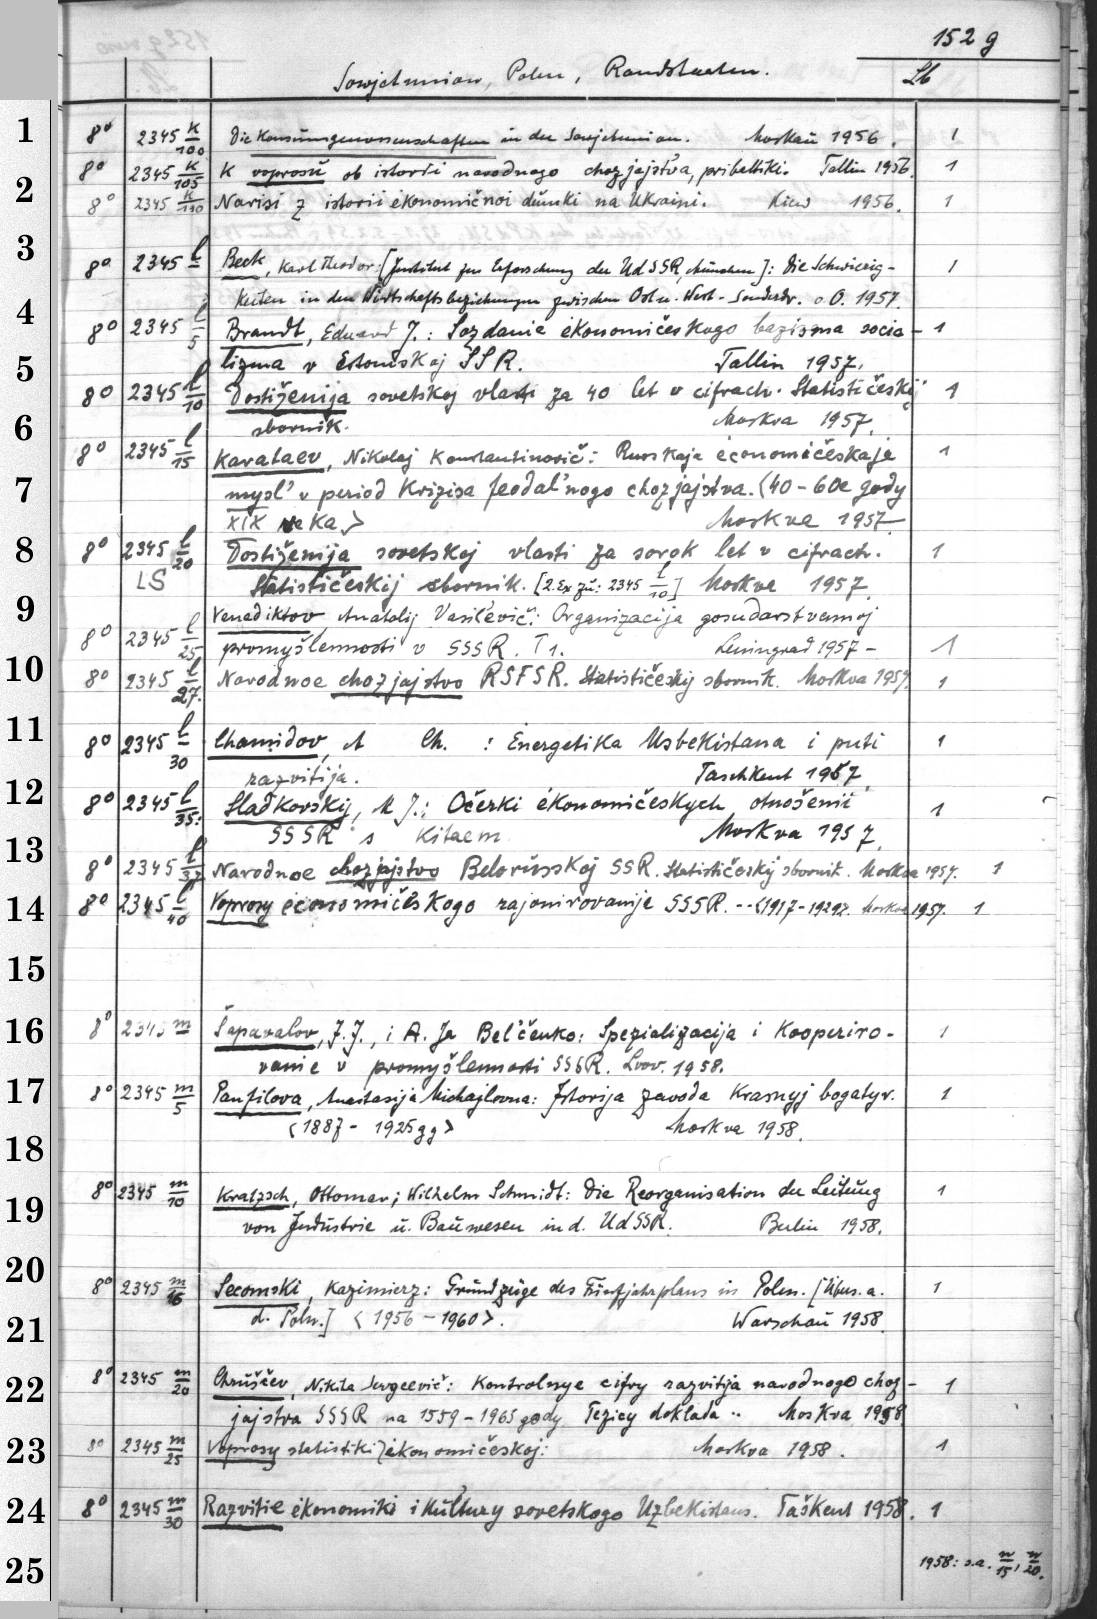 152 g
Sowjetunion, Polen, Randstaaten. Lb
1 8° 2345 k/100 Die Konsumgenossenschaften in der Sowjetunion. Moskau 1956. 1
8° 2345 k/105 K voprosu ob istorii narodnogo chozjajstva, pribaltiki. Tallin 1956. 1
2 8° 2345 k/110 Narisi z istorii ėkonomičnoi dumki na Ukraini. Kiew 1956. 1
3 8° 2345 l Beck, Karl Theodor: [Institut zur Erforschung der UdSSR, München]: Die Schwierig- 1
keiten in den Wirtschaftsbeziehungen zwischen Ost u. West - Sonderdr. o.O. 1957
4 8° 2345 l/5 Brandt, Eduard J.: Sozdanie ėkonomičeskogo bazisma socia- 1
5 lizma v Estonskoj SSR. Tallin 1957.
8° 2345 l/10 Dostiženija sovetskoj vlasti za 40 let v cifrach. Statističeskij 1
6 sbornik. Moskva 1957.
8° 2345 l/15 Karataev, Nikolaj Konstantinovič: Russkaja ėconomičeskaja 1
7 mysl' v period Krizisa feodal'nogo chozjajstva. (40-60e gody
XIX veka) Moskva 1957
8 8° 2345 l/20 Dostiženija sovetskoj vlasti za sorok let v cifrach. 1
LS Statističeskij sbornik. [2.Ex zu: 2345 l/10] Moskva 1957.
9 Venediktov Anatolij Vasil'evič: Organizacija gosudarstvennoj
8° 2345 l/25 promyšlennosti v SSSR. T 1. Leningrad 1957 - 1
10 8° 2345 l/27. Narodnoe chozjajstvo RSFSR. Statističeskij sbornik. Moskva 1957. 1
11 8° 2345 l/30 Chamidov, A Ch. : Energetika Usbekistana i puti 1
razvitija. Taschkent 1957
12 8° 2345 l/35: Sladkovskij, M J.: Očerki ėkonomičeskych otnošenii 1
SSSR s Kitaem Moskva 1957.
13 8° 2345 l/37 Narodnoe chozjajstvo Belorusskoj SSR. Statističeskij sbornik. Moskva 1957. 1
14 8° 2345 l/40 Voprosy ėconomičeskogo rajonirovanije SSSR. --<1917-1929>. Moskva 1957. 1
15
16 8° 2345 m Šapavalov, J.J., i A. Ja Bel'čenko: Spezializacija i Kooperiro- 1
vanie v promyšlennosti SSSR. Lvov. 1958.
17 8° 2345 m/5 Panfilova, Anastasija Michajlovna: Istorija zavoda Krasnyj bogatyr. 1
<1887 - 1925gg> Moskva 1958.
18
8° 2345 m/10 Kratzsch, Ottomar; Wilhelm Schmidt: Die Reorganisation der Leitung 1
19 von Industrie u. Bauwesen in d. UdSSR. Berlin 1958.
20 8° 2345 m/16 Secomski, Kazimierz: Grundzüge des Fünfjahrplans in Polen. [Übers. a. 1
21 d. Poln.] <1956-1960>. Warschau 1958.
22 8° 2345 m/20 Chruščev, Nikita Sergeevič: Kontrolnye cifry razvitija narodnogo choz- 1
jajstva SSSR na 1559-1965 gody Tezicy doklada .. Moskva 1958
23 8° 2345 m/25 Voprosy statistiki ėkonomičeskoj: Moskva 1958. 1
24 8° 2345 m/30 Razvitie ėkonomiki i kul'tury sovetskogo Uzbekistans. Taškent 1958. 1
25 1958: s.a. n/15, n/20.